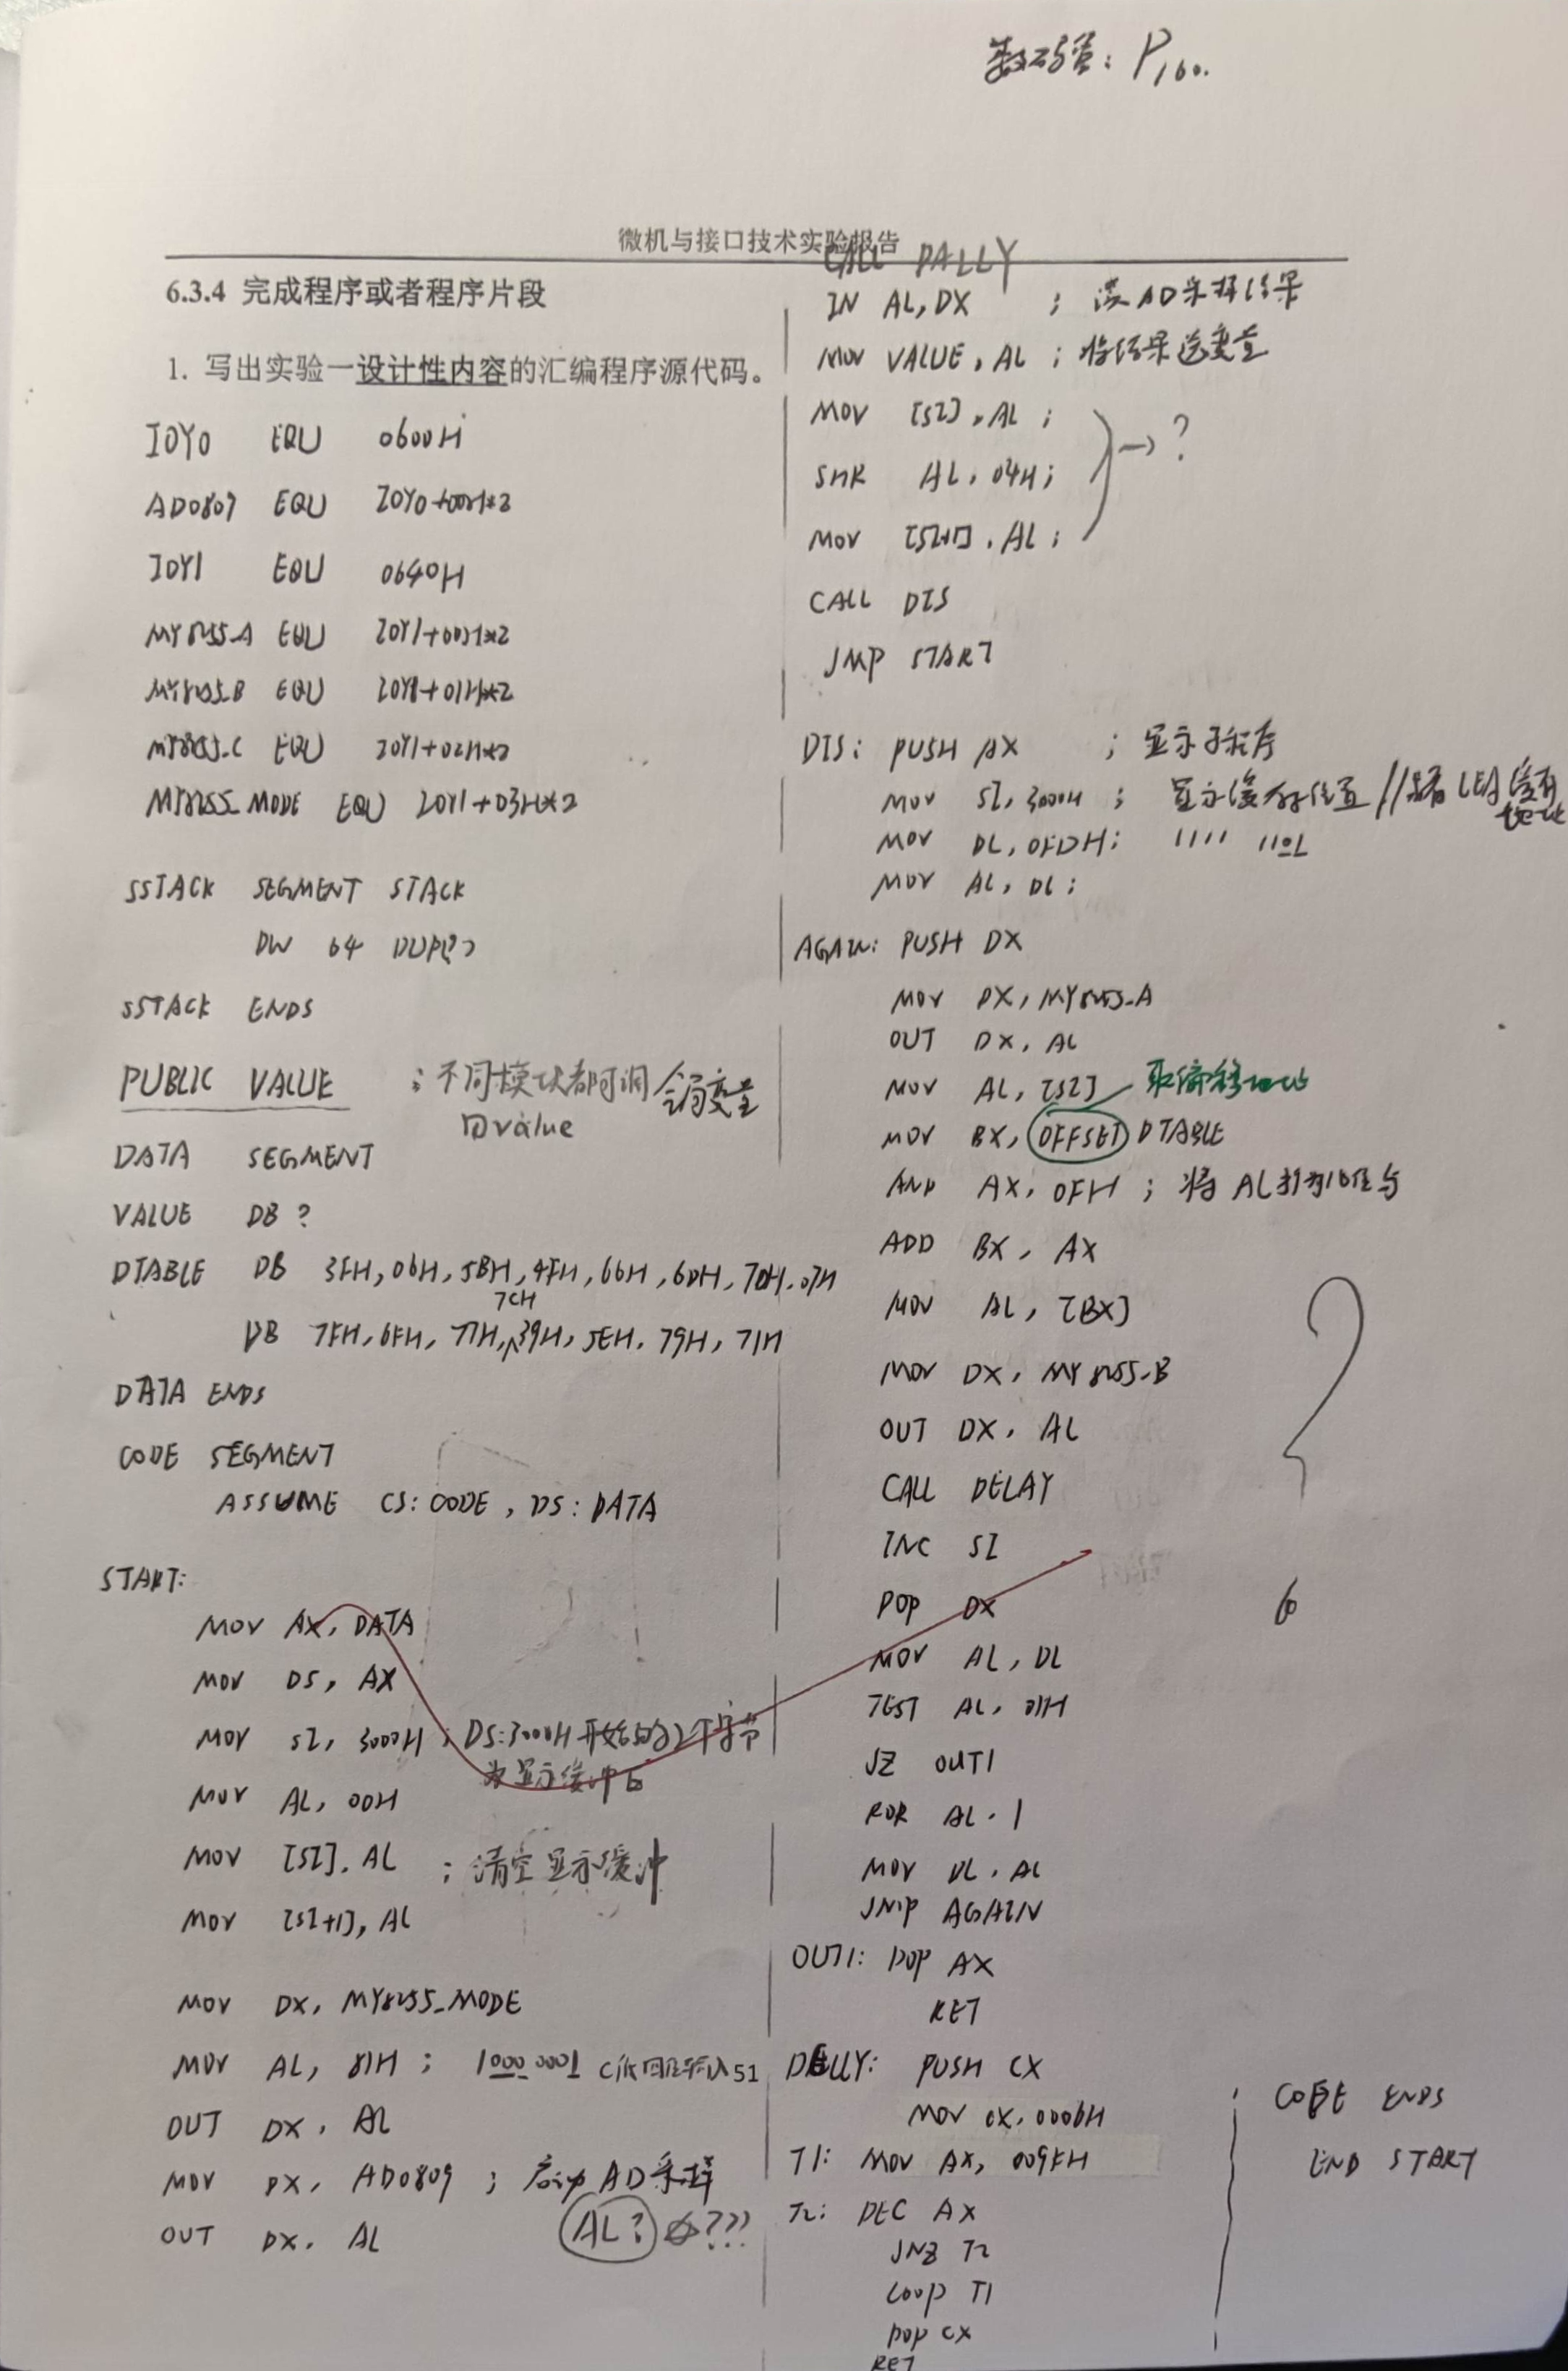 数码管：P160.
微机与接口技术实验报告
6.3.4 完成程序或者程序片段
1. 写出实验一设计性内容的汇编程序源代码。
IOY0 EQU 0600H
AD0809 EQU IOY0+00H*2
IOY1 EQU 0640H
MY8255_A EQU IOY1+00H*2
MY8255_B EQU IOY1+01H*2
MY8255_C EQU IOY1+02H*2
MY8255_MODE EQU IOY1+03H*2
SSTACK SEGMENT STACK
DW 64 DUP(?)
SSTACK ENDS
PUBLIC VALUE ；不同模块都可调 全局变量
用value
DATA SEGMENT
VALUE DB ?
DTABLE DB 3FH, 06H, 5BH, 4FH, 66H, 6DH, 7DH, 07H
7CH
DB 7FH, 6FH, 77H, 39H, 5EH, 79H, 71H
DATA ENDS
CODE SEGMENT
ASSUME CS: CODE, DS: DATA
START:
MOV AX, DATA
MOV DS, AX
MOV SI, 3000H ；DS:3000H 开始的2个字节
为显示缓冲区
MOV AL, 00H
MOV [SI], AL ；清空显示缓冲
MOV [SI+1], AL
MOV DX, MY8255_MODE
MOV AL, 81H ； 1000 0001 C低四位输入 51
OUT DX, AL
MOV DX, AD0809 ；启动AD采样
OUT DX, AL AL? ???
CALL DALLY
IN AL, DX ；读AD采样结果
MOV VALUE, AL ；将结果送变量
MOV [SI], AL ；
SHR AL, 04H； → ?
MOV [SI+1], AL；
CALL DIS
JMP START
DIS: PUSH AX ；显示子程序
MOV SI, 3000H ； 显示缓存位置 // LED缓存
地址
MOV DL, 0FDH； 1111 1101
MOV AL, DL；
AGAIN: PUSH DX
MOV DX, MY8255_A
OUT DX, AL
MOV AL, [SI] 取偏移地址
MOV BX, OFFSET DTABLE
AND AX, 0FH ；将AL扩为16位与
ADD BX, AX
MOV AL, [BX]
MOV DX, MY8255_B
OUT DX, AL
CALL DELAY
INC SI
POP DX
6
MOV AL, DL
TEST AL, 01H
JZ OUT1
ROR AL, 1
MOV DL, AL
JMP AGAIN
OUT1: POP AX
RET
DELLY: PUSH CX
MOV CX, 0006H
T1: MOV AX, 009FH
T2: DEC AX
JNZ T2
LOOP T1
POP CX
RET
CODE ENDS
END START